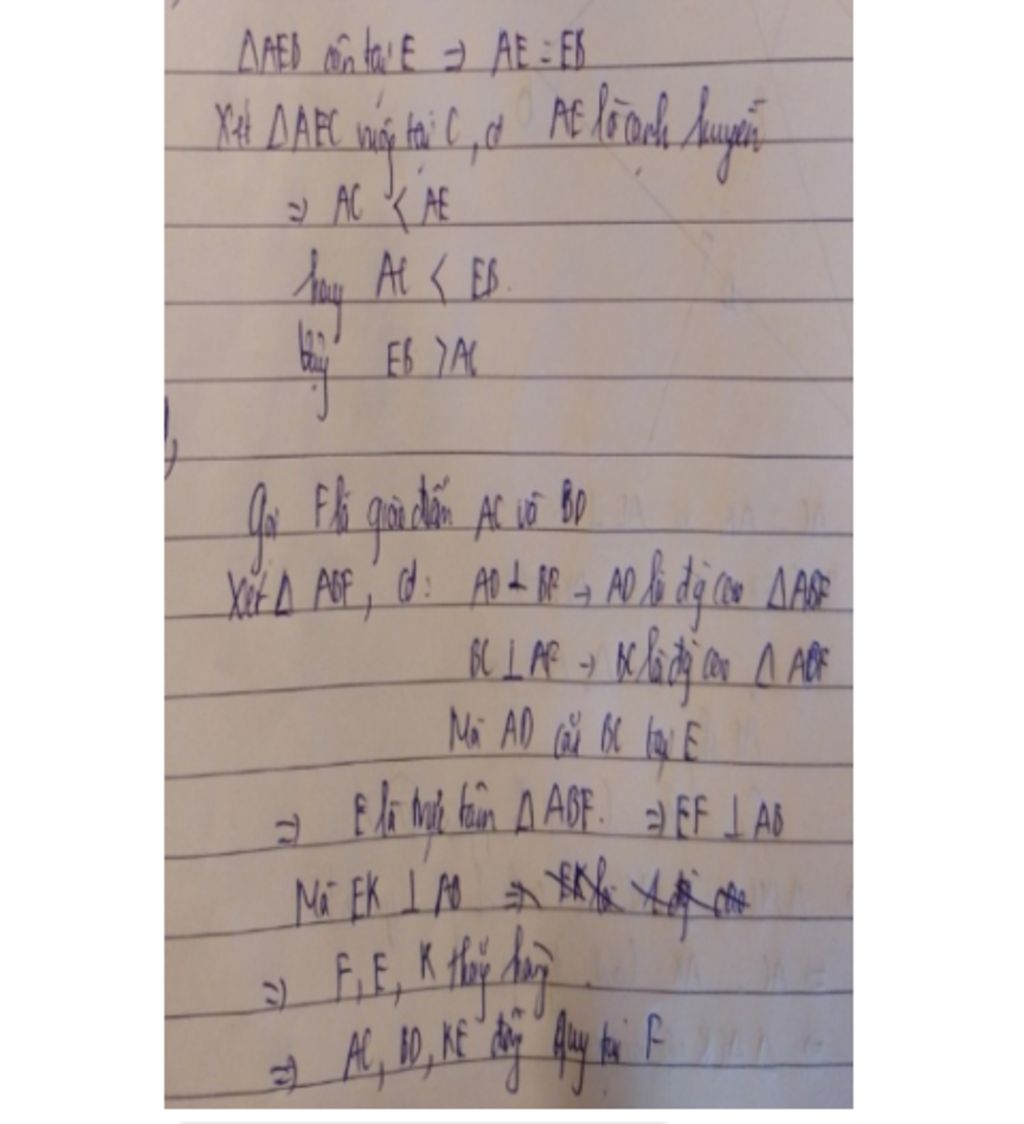 ΔAEB cân tại E ⇒ AE = EB
Xét ΔAEC vuông tại C, có AE là cạnh huyền
⇒ AC < AE
hay AC < EB.
Vậy EB > AC
Gọi F là giao điểm AC và BD
Xét Δ ABF, có: AD ⊥ BF → AD là đg cao ΔABF
BC ⊥ AF → BC là đg cao Δ ABF
Mà AD cắt BC tại E
⇒ E là trực tâm Δ ABF. ⇒ EF ⊥ AB
Mà EK ⊥ AB ⇒
⇒ F, E, K thẳng hàng
⇒ AC, BD, KE đồng quy tại F